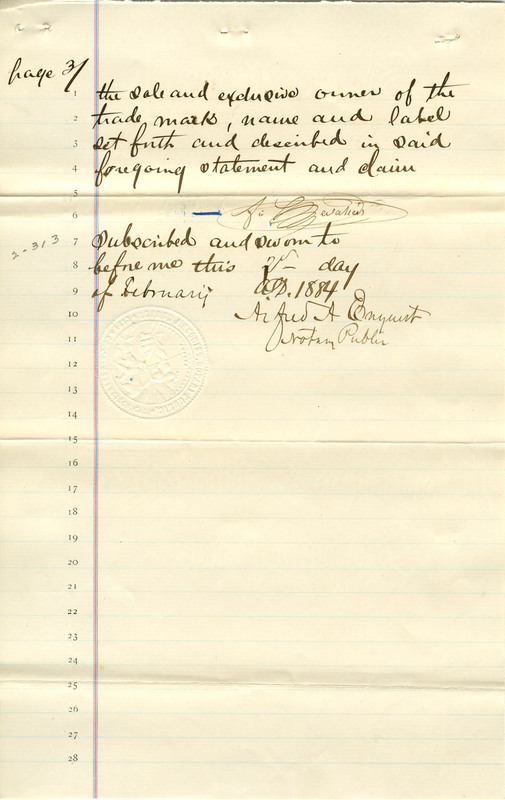 page 3/
1 the sole and exclusive owner of the
2 trade mark, name and label
3 set forth and described in said
4 foregoing statement and claim
5
6
2-313
7 Subscribed and sworn to
8 before me this day
9 of February A.D. 1884
10 Alfred A. Enquist
11 Notary Public
12
13
14
15
16
17
18
19
20
21
22
23
24
25
26
27
28